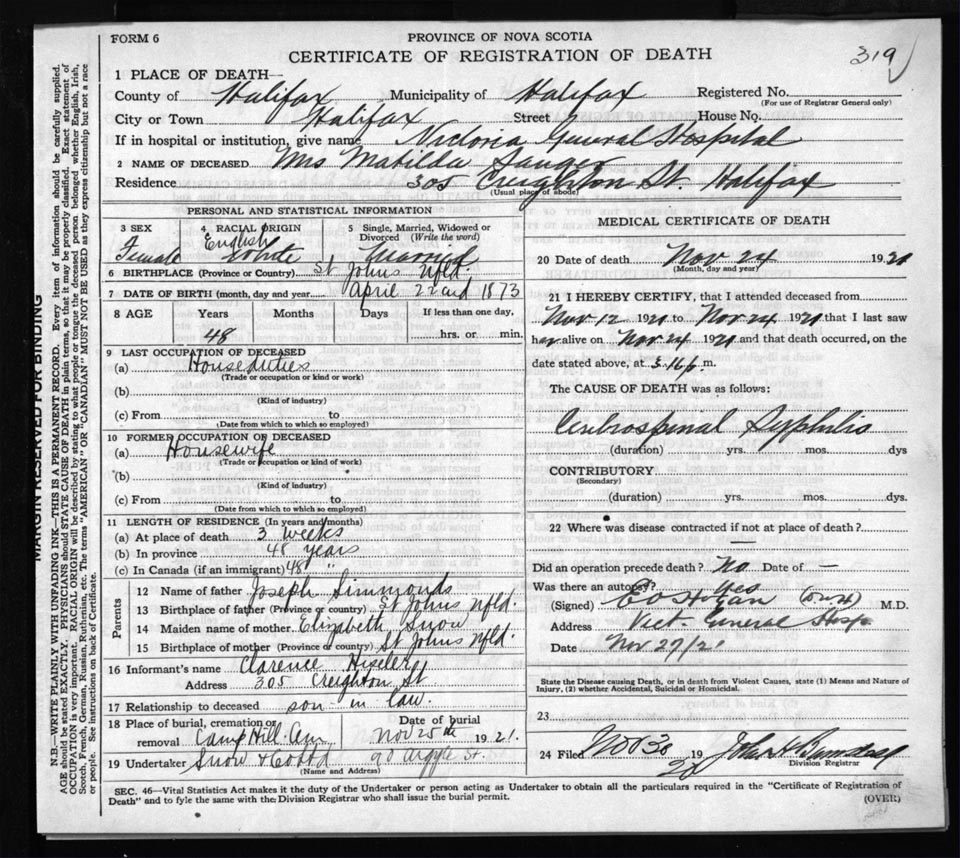 FORM 6
PROVINCE OF NOVA SCOTIA
CERTIFICATE OF REGISTRATION OF DEATH
319
1 PLACE OF DEATH—
County of Halifax Municipality of Halifax Registered No.
(For use of Registrar General only)
City or Town Halifax Street House No.
If in hospital or institution, give name Victoria General Hospital
2 NAME OF DECEASED Mrs Matilda Sauger
Residence 305 Creighton St. Halifax
(Usual place of abode)
PERSONAL AND STATISTICAL INFORMATION
3 SEX 4 RACIAL ORIGIN 5 Single, Married, Widowed or Divorced (Write the word)
Female English White Married
6 BIRTHPLACE (Province or Country) St Johns Nfld.
7 DATE OF BIRTH (month, day and year) April 22nd 1873
8 AGE Years Months Days If less than one day,
48 hrs. or min.
9 LAST OCCUPATION OF DECEASED
(a) House duties
(Trade or occupation or kind or work)
(b)
(Kind of industry)
(c) From to
(Date from which to which so employed)
10 FORMER OCCUPATION OF DECEASED
(a) Housewife
(Trade or occupation or kind of work)
(b)
(Kind of industry)
(c) From to
(Date from which to which so employed)
11 LENGTH OF RESIDENCE (In years and months)
(a) At place of death 3 weeks
(b) In province 48 years
(c) In Canada (if an immigrant) 48 "
Parents
12 Name of father Joseph Simmonds
13 Birthplace of father (Province or country) St Johns Nfld.
14 Maiden name of mother Elizabeth Snow
15 Birthplace of mother (Province or country) St Johns Nfld.
16 Informant's name Clarence Hiseler
Address 305 Creighton St
17 Relationship to deceased son-in law.
18 Place of burial, cremation or removal Camp Hill Cem Date of burial Nov 25th 1921.
19 Undertaker Snow & Co Ltd 90 Argyle St.
(Name and Address)
MEDICAL CERTIFICATE OF DEATH
20 Date of death Nov 24 1921
(Month, day and year)
21 I HEREBY CERTIFY, that I attended deceased from
Nov 12 1921 to Nov 24 1921 that I last saw
her alive on Nov 24 1921 and that death occurred, on the
date stated above, at 3.16 p. m.
The CAUSE OF DEATH was as follows:
Cerebrospinal Syphilis
(duration) yrs. mos. dys
CONTRIBUTORY
(Secondary)
(duration) yrs. mos. dys.
22 Where was disease contracted if not at place of death?
—
Did an operation precede death? No Date of —
Was there an autopsy? Yes
(Signed) M.D.
Address Vict. General Hosp.
Date Nov 27/21
State the Disease causing Death, or in death from Violent Causes, state (1) Means and Nature of Injury, (2) whether Accidental, Suicidal or Homicidal.
23
24 Filed Nov 30 1921 John H
Division Registrar
SEC. 46—Vital Statistics Act makes it the duty of the Undertaker or person acting as Undertaker to obtain all the particulars required in the "Certificate of Registration of
Death" and to fyle the same with the Division Registrar who shall issue the burial permit.
(OVER)
MARGIN RESERVED FOR BINDING
N.B.—WRITE PLAINLY WITH UNFADING INK—THIS IS A PERMANENT RECORD. Every item of information should be carefully supplied.
AGE should be stated EXACTLY. PHYSICIANS should STATE CAUSE OF DEATH in plain terms, so that it may be properly classified. Exact statement of
OCCUPATION is very important. RACIAL ORIGIN will be described by stating to what people or tongue the deceased person belonged whether English, Irish,
Scotch, French, German, Russian, Ruthenian, etc. The terms "AMERICAN" OR "CANADIAN" MUST NOT BE USED as they express citizenship but not a race
or people. See instructions on back of Certificate.